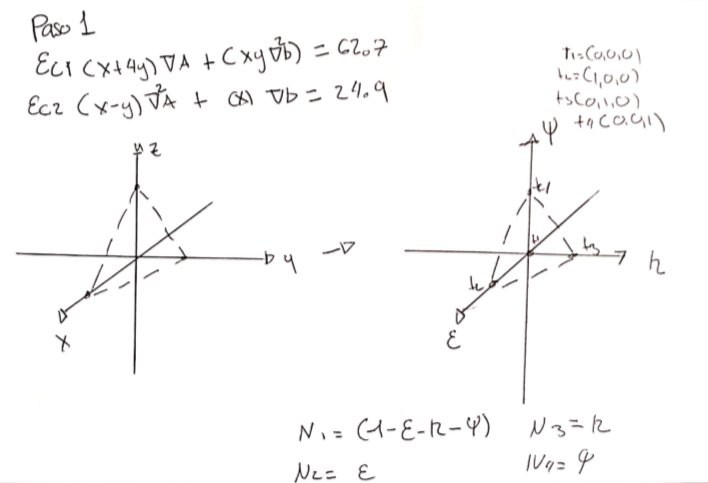 Paso 1
Ec1 (x+4y)∇A + (xy∇²b) = 62.7
Ec2 (x-y)∇²A + (x)∇b = 24.9
t1=(0,0,0)
t2=(1,0,0)
t3(0,1,0)
t4(0,0,1)
z
y
x
ψ
t1
t3
n
t2
ε
N1 = (1-ε-n-ψ)
N3 = n
N2 = ε
N4 = ψ